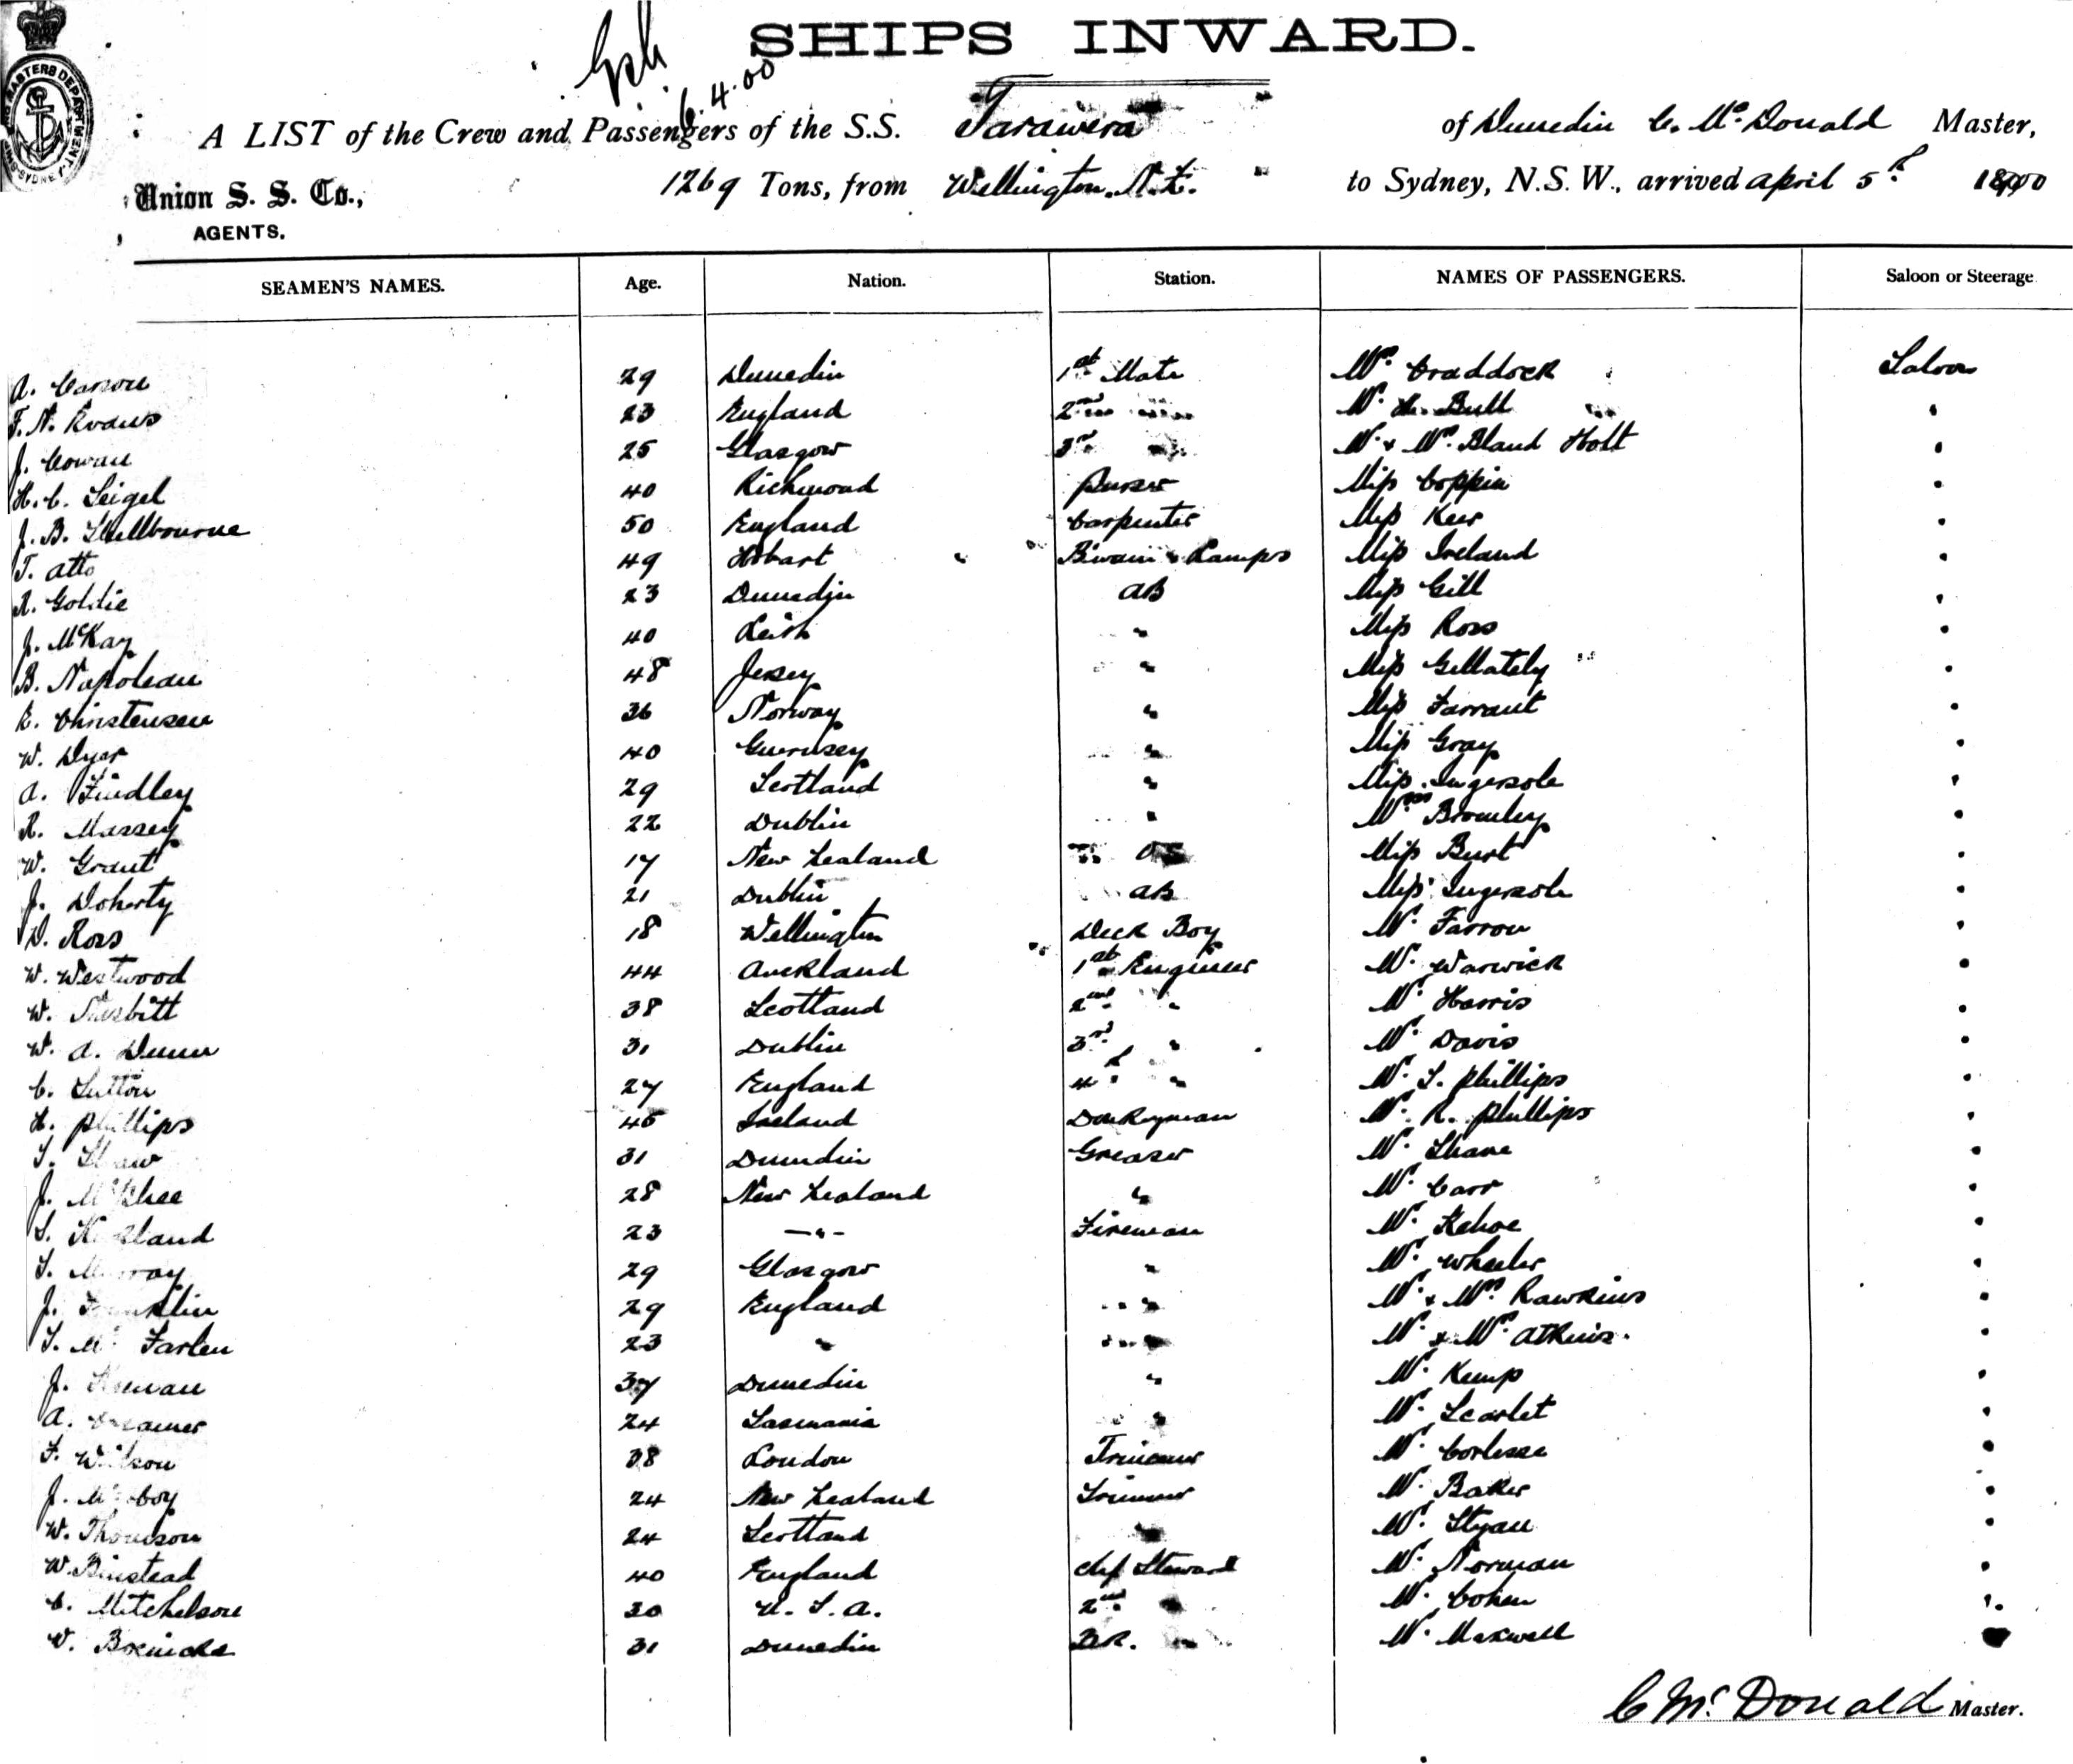 SHIPS INWARD.
6.4.00
A LIST of the Crew and Passengers of the S.S. Tarawera of Dunedin C. McDonald Master,
Union S. S. Co., 1269 Tons, from Wellington. N.Z. to Sydney, N.S.W., arrived April 5th 1900
AGENTS.
SEAMEN'S NAMES. Age. Nation. Station. NAMES OF PASSENGERS. Saloon or Steerage
A. Carson 29 Dunedin 1st Mate Mrs. Craddock Saloon
F. N. Evans 23 England 2nd " Mr. Bull "
J. Cowan 25 Glasgow 3rd " Mr. & Mrs. Bland Holt "
H. C. Seigel 40 Richmond Purser Miss Coppin "
J. B. Shellbourne 50 England Carpenter Miss Keir "
T. Atto 49 Hobart B'swain & Lamps Miss Ireland "
R. Goldie 23 Dunedin AB Miss Gill "
J. McKay 40 Leith " Miss Ross "
B. Napolean 48 Jersey " Miss Gellately "
E. Christensen 36 Norway " Miss Farrant "
W. Dyer 40 Guernsey " Miss Gray "
A. Findley 29 Scotland " Miss Ingersole "
R. Massey 22 Dublin " Mrs Bromley "
W. Grant 17 New Zealand OS Miss Burt "
J. Doherty 21 Dublin AB Miss Ingersole "
D. Ross 18 Wellington Deck Boy Mr. Farrow "
W. Westwood 44 Auckland 1st Engineer Mr. Warwick "
W. Nesbitt 38 Scotland 2nd " Mr. Harris "
W. A. Dunn 31 Dublin 3rd " Mr. Davis "
C. Sutton 27 England 4th " Mr. S. Phillips "
H. Phillips 45 Ireland Donkeyman Mr. R. Phillips "
T. Shaw 31 Dunedin Greaser Mr. Shane "
J. McPhee 28 New Zealand " Mr. Carr "
S. Kirkland 23 —"— Fireman Mr. Kehoe "
T. Murray 29 Glasgow " Mr. Wheeler "
J. Franklin 29 England " Mr. & Mrs. Rawkins "
T. McFarlen 23 " " Mr. & Mrs. Atkins. "
J. 37 Dunedin " Mr. Kemp "
A. Creamer 24 Tasmania " Mr. Scarlet "
F. Wilson 38 London Trimmer Mr. Corlesse "
J. McCoy 24 New Zealand Trimmer Mr. Baker "
W. Thomson 24 Scotland " Mr. Styan "
W. Binstead 40 England Chf Steward Mr. Norman "
C. Mitchelson 30 U.S.A. 2nd " Mr. Cohen "
31 Dunedin Mr. Maxwell "
C McDonald Master.